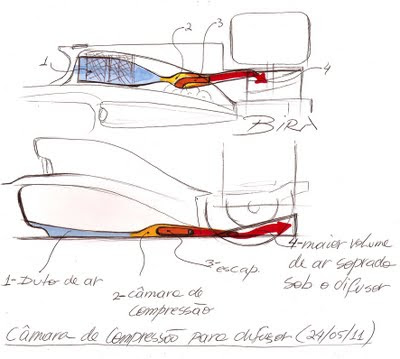 1
2
3
4
BIRA
1-Dutor de ar
2-câmara de
compressão
3-escap.
4-maior volume
de ar soprado
sob o difusor
Câmara de Compressão para difusor (24/05/11)